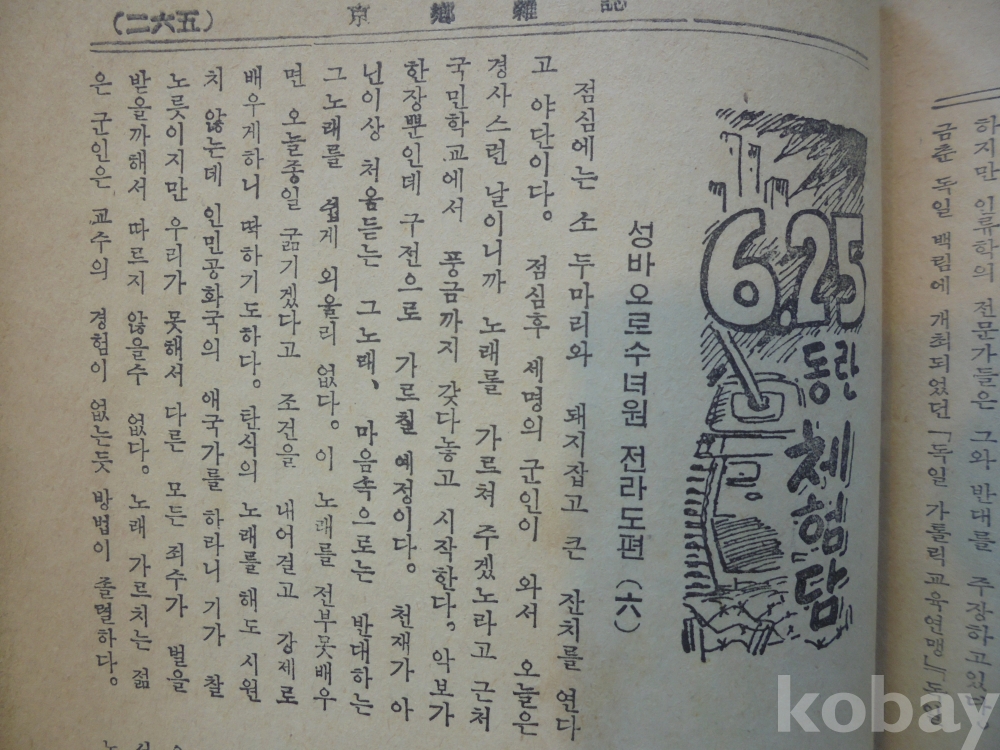 하지만 인류학의 전문가들은 그와 반대를 주장하고있다.
금춘 독일 백림에 개최되었던 「독일 가톨릭교육연맹」
京鄕雜誌
(二六五)
6.25
동란
체험담
성바오로수녀원 전라도편 (六)
점심에는 소 두마리와 돼지잡고 큰 잔치를 연다
고 야단이다. 점심후 세명의 군인이 와서 오늘은
경사스런 날이니까 노래를 가르쳐 주겠노라고 근처
국민학교에서 풍금까지 갖다놓고 시작한다. 악보가
한장뿐인데 구전으로 가르칠 예정이다. 천재가 아
닌이상 처음듣는 그노래, 마음속으로는 반대하는
그노래를 쉽게 외울리 없다. 이 노래를 전부못배우
면 오늘종일 굶기겠다고 조건을 내어걸고 강제로
배우게하니 딱하기도하다. 탄식의 노래를 해도 시원
치 않는데 인민공화국의 애국가를 하라니 기가 찰
노릇이지만 우리가 못해서 다른 모든 죄수가 벌을
받을까해서 따르지 않을수 없다. 노래 가르치는 젊
은 군인은 교수의 경험이 없는듯 방법이 졸렬하다.
kobay